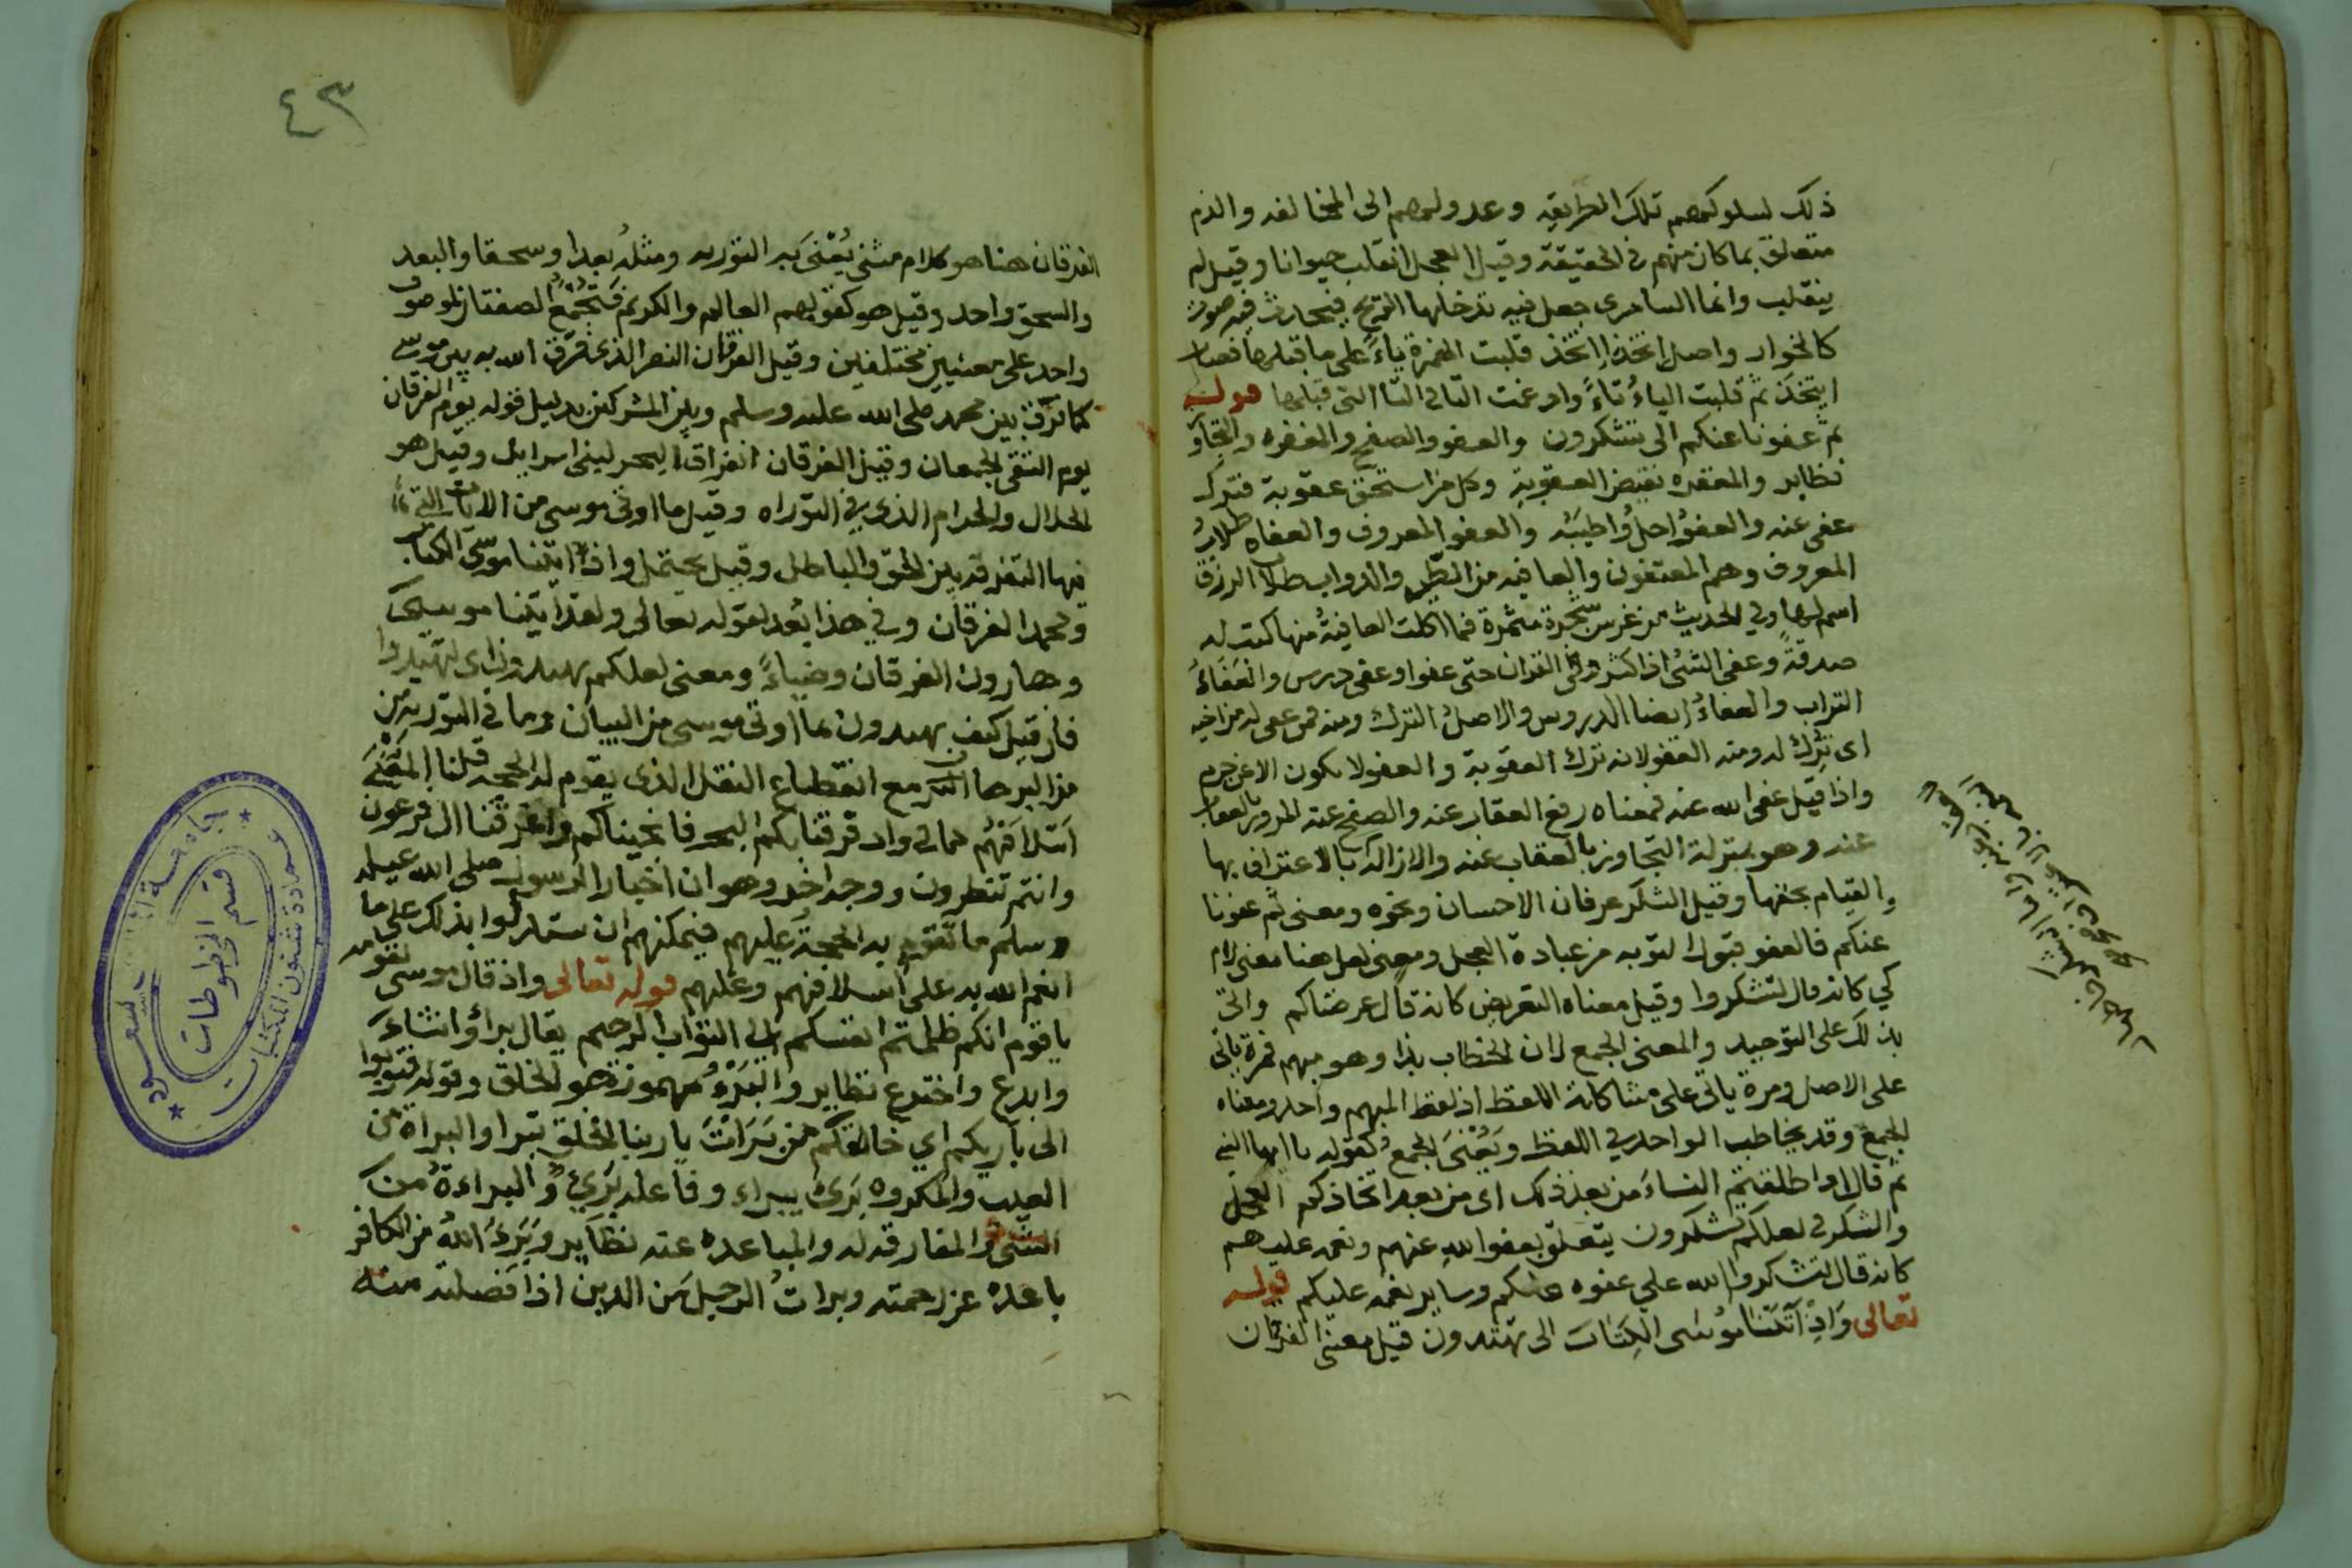 ذلك لسلوكهم تلك الطريقه وعدولهم الى المخالفه والذم
متعلق بما كان منهم في الحقيقة وقيل العجل انقلب حيوانا وقيل لم
ينقلب وانما السامري جعل فيه تدخلها الريح فيحدث فيه صوت
كالخوار واصل اتخذ إاتخذ قلبت الهمزة ياءً على ما قبلها فصار
ايتخذ ثم قلبت الياءُ تاءً وادغمت التا في التا التي قبلها قوله
ثم عفونا عنكم الى تشكرون والعفو والصفح والمغفره والتجاوز
نظاير والمغفره نقيض العقوبة وكل من استحق عقوبة فترك
عفى عنه والعفوُ احلُ واطيَبُه والعفو المعروف والعفاه طلابُ
المعروف وهم المعتفون والعافيه من الطير والدواب طلاب الرزق
اسم لها وفي الحديث من غرس شجرة مثمرة فما اكلت العافيةُ منها كتب له
صدقةً وعفى الشئ اذا كثر وفي القران حتى عفوا وعفى درس والعَفَاءُ
التراب والعفاءُ ايضا الدروس والاصلُ الترك ومنه فمن عفى له من اخيه
اى تُرك له ومنه العفو لانه ترك العقوبة والعفو لا يكون الا عن جرم
واذا قيل عفى الله عنه فمعناه رفع العقاب عنه والصفح عنه المرور بالعقاب
عنه وهو بمنزلة التجاوز بالعقاب عنه والازاله بالاعتراف بها
والقيام بحقها وقيل الشكر عرفان الاحسان ونحوه ومعنى ثم عفونا
عنكم فالعفو قبول التوبه من عبادة العجل ومعنى لعل هنا معنى لام
كي كانه قال لتشكروا وقيل معناه التعريض كانه قال عرضناكم واتى
بذلك على التوحيد والمعنى الجمع لان الخطاب بذا وهو مبهم فمرة ياتى
على الاصل ومرة ياتى على مشاكلة اللفظ اذ لفظ المبهم واحد ومعناه
الجمع وقد يخاطب الواحد في اللفظ ويُعْنَى الجمعُ كقوله يا ايها النبى
ثم قال اذا طلقتم النساءَ من بعد ذلك اى من بعد اتخاذكم العجل
والشكر في لعلكم تشكرون يتعلق بعفو اللهِ عنهم ونعمه عليهم
كانه قال لتشكروا الله على عفوه عنكم وساير نعمه عليكم قوله
تعالى وَاِذْ آتَيْنَا مُوسَى الكِتَابَ الى تهتدون قيل معنى الفرقان
٤٣
الفرقان هنا هو كلام مثنى يُعْنَى به التوريه ومثلُه بعدا وسحقا والبعد
والسحق واحد وقيل هو كقولهم العالم والكريم فتجمع الصفتان لموصوف
واحد على معنيين مختلفين وقيل الفرقان النصر الذي فرّق الله به بين موسى
كما فرّق بين محمد صلى الله عليه وسلم وبين المشركين بدليل قوله يوم الفرقان
يوم التقى الجمعان وقيل الفرقان انفراق البحر لبنى اسرايل وقيل هو
الحلال والحرام الذي في التوراه وقيل ما اوتى موسى من الايات التي
فيها التفرقه بين الحق والباطل وقيل يحتمل واذ اتينا موسى الكتاب
ومحمدا الفرقان وفي هذا بُعد لقوله تعالى ولقد اتينا موسى
وهارون الفرقان وضياءً ومعنى لعلكم تهتدون اى لتهتدوا
فان قيل كيف يهتدون بما اوتى موسى من البيان وما في التورية من
من البرهان مع انقطاع النقل الذي يقوم له الحجه قلنا المَعْنَى
اَسْلافَهُم كما في واذ فرقنا بكم البحر فانجيناكم واغرقنا ال فرعون
وانتم تنظرون ووجه اخر وهو ان اخبار الرسول صلى الله عليه
وسلم ما تقوم به الحجةُ عليهم فيمكنهم ان يستدلوا بذلك على ما
انعم الله به على اسلافهم وعليهم قوله تعالى واذ قال موسى لقومه
يا قوم انكم ظلمتم انفسكم الى التواب الرحيم يقال برأ وانشاءَ
وابدع واخترع نظاير والبَرْءُ مهموزة هو الخلق وقوله فتوبوا
الى باريكم اى خالقكم من بَرَاْتَ يا ربنا الخلق تبرا والبراة من
العيب والمكروه بَرئَ يبراء وفاعله بَرِيءٌ والبراءةُ من
الشئ والمفارقه له والمباعده عنه نظاير وبَرِءَ اللهُ من الكافر
باعده عن رحمته وبراتُ الرجل من الدين اذا فصلته منه
جامعة
عمادة شئون المكتبات
قسم المخطوطات